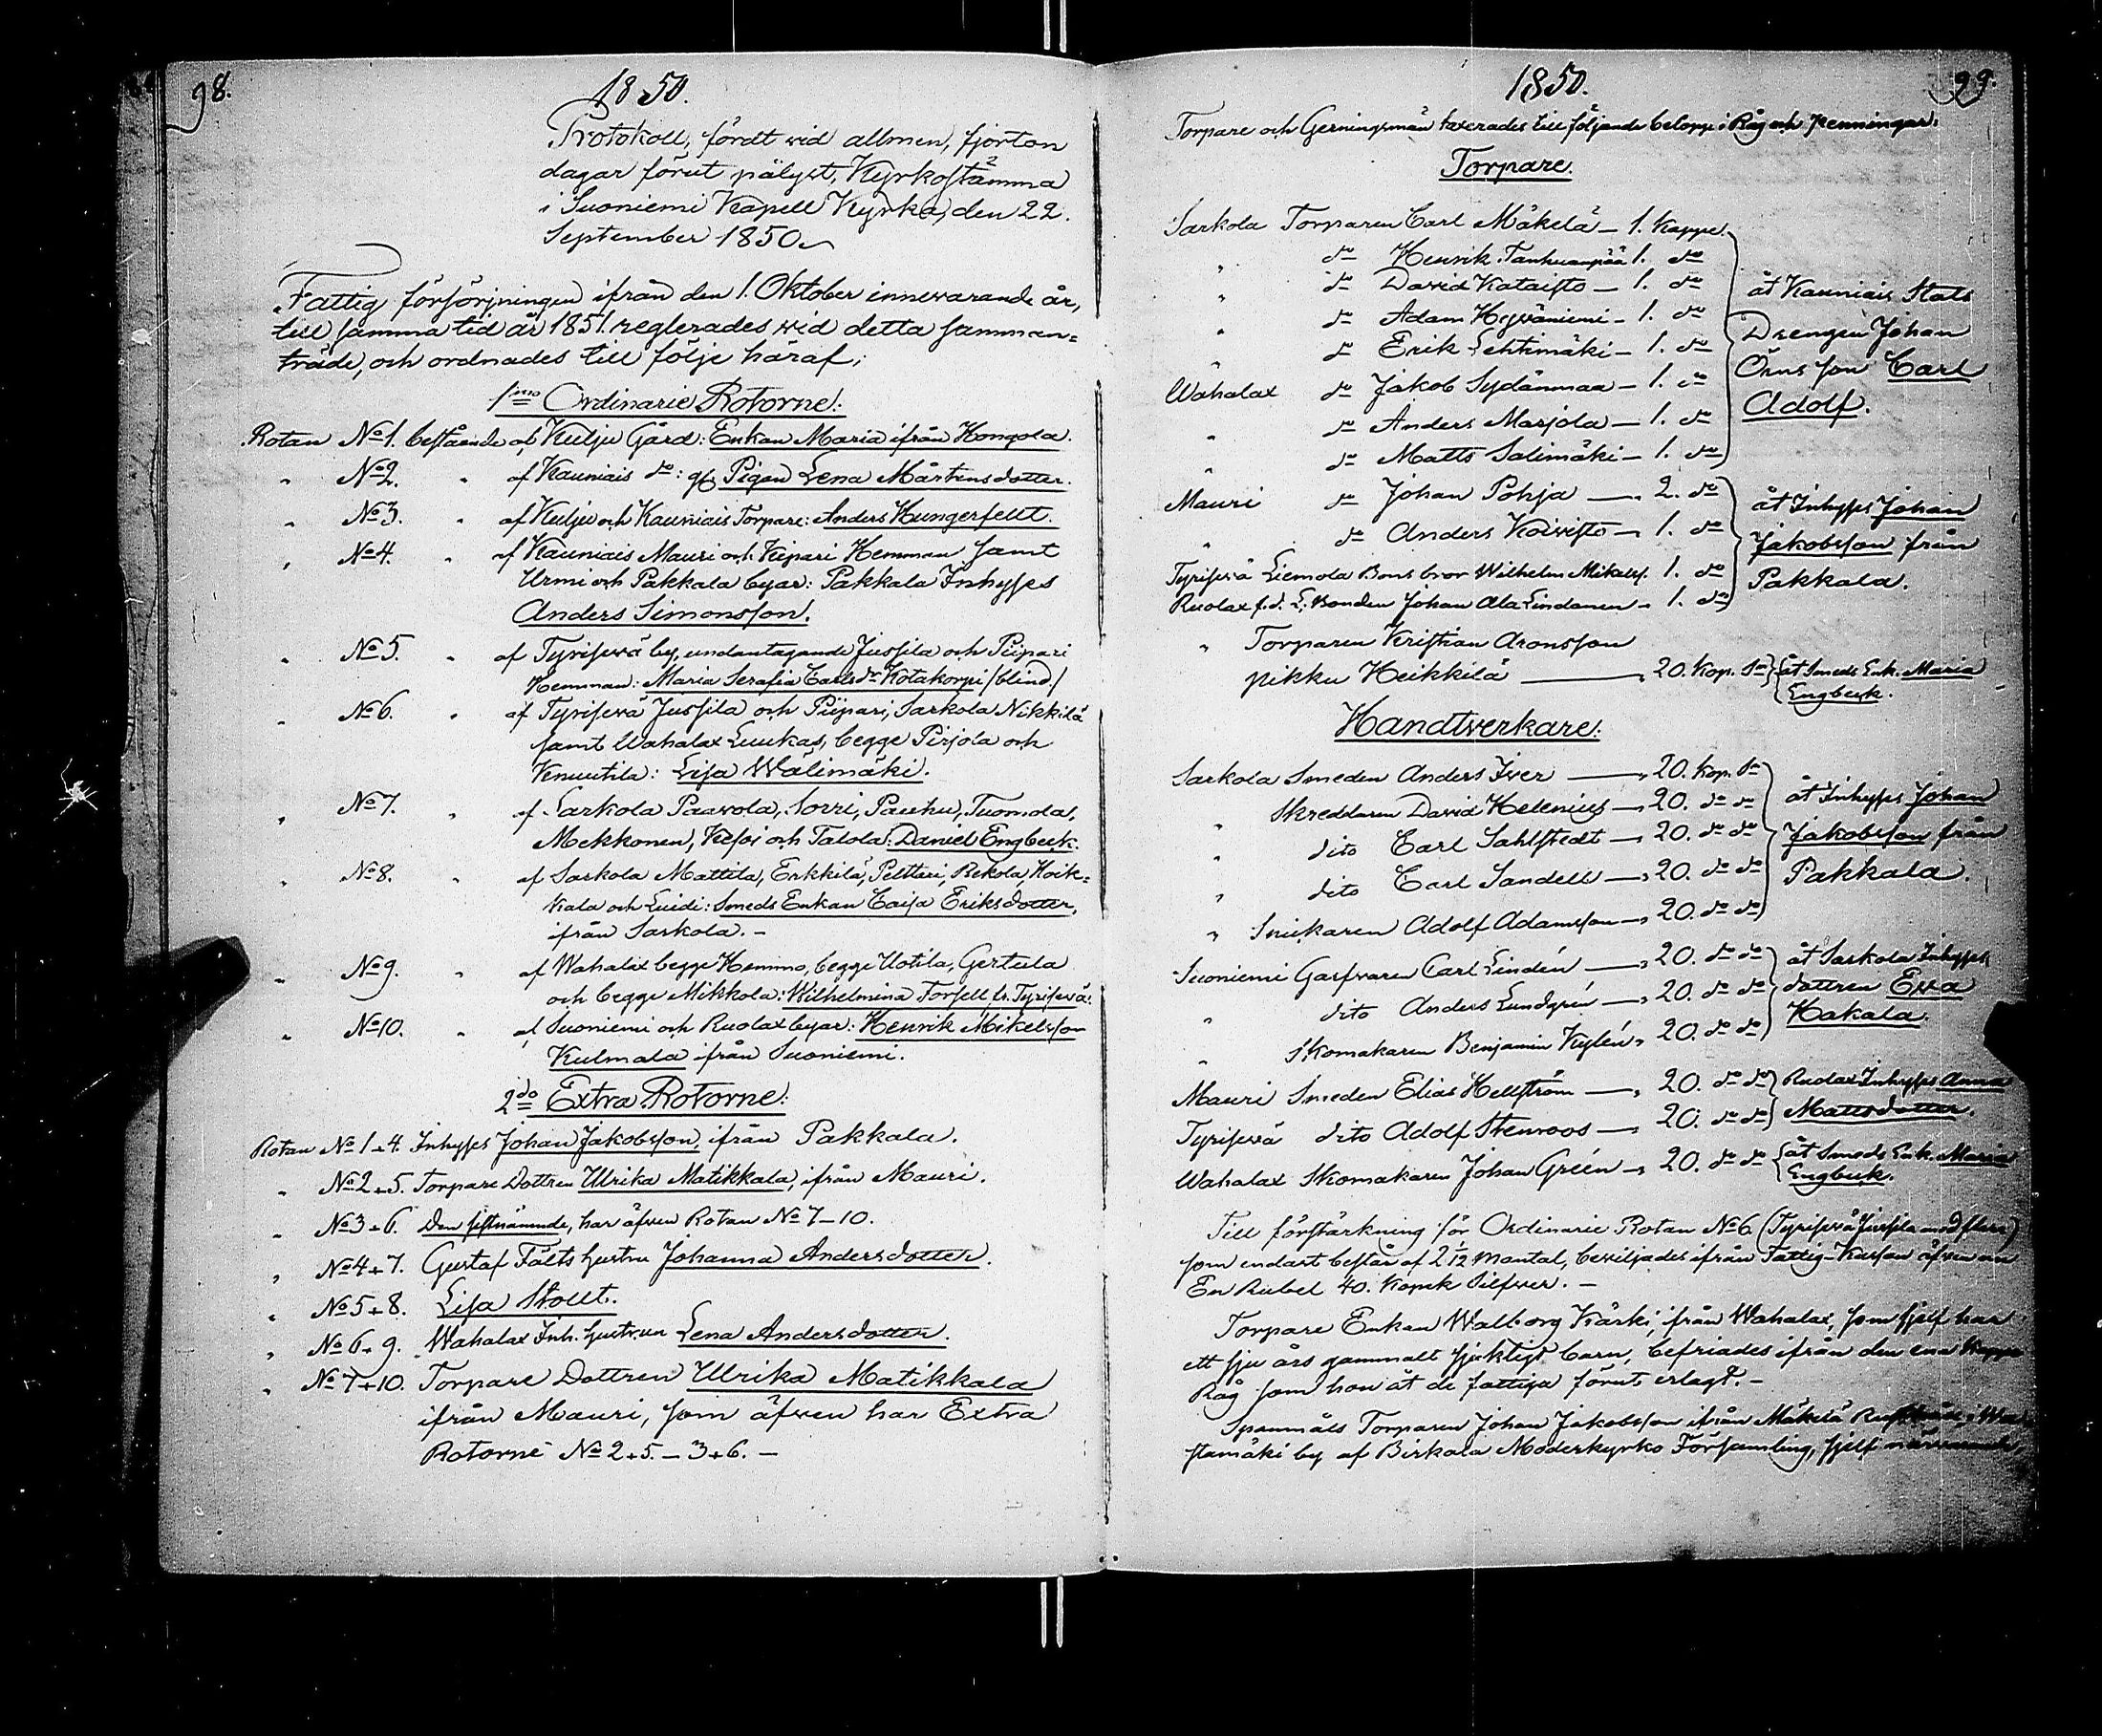 98.
1850.
Protokoll, fördt wid allmen, fjorton
dagar förut pålyst, Kyrkostämma
i Suoniemi Kapell Kyrka, den 22.
September 1850.
Fattig försörjningen ifrån den 1. Oktober innewarande år,
till samma tid år 1851. reglerades wid detta samman=
träde, och ordnades till följe häraf:
1mo Ordinarie Rotorne:
Rotan No 1. bestående af Kulju Gård: Enkan Maria ifrån Hongola.
" No 2. " af Kauniais do: Pigan Lena Mårtensdotter.
" No 3. " af Kulju och Kauniais Torpare: Anders Hungerfellt.
" No 4. " af Kauniais Mauri och Kipari Hemman samt
Urmi och Pakkala byar: Pakkala Inhyses
Anders Simonsson.
" No 5. " af Tyrisewä by, undantagande Jussila och Piipari
Hemman: Maria Serafia Carlsdr Kotakorpi /blind/
" No 6. " af Tyrisewä Jussila och Piipari, Sarkola Nikkilä
samt Wahalax Luukas, begge Pirjola och
Knuutila: Lisa Wälimäki.
" No 7. " af Sarkola Paawola, Sorri, Pauhu, Tuomola,
Mekkonen, Kesoi och Talola: Daniel Engbeck.
" No 8. " af Sarkola Mattila, Erkkilä, Pelttari, Rekola, Koik=
kala och Luidi: Smeds Enkan Caisa Eriksdotter,
ifrån Sarkola. -
" No 9. " af Wahalax begge Hemmo, begge Uotila, Gertula
och begge Mikkola: Wilhelmina Forsell fr. Tyrisewä.
" No 10. " af Suoniemi och Ruolax byar: Henrik Mikelsson
Kulmala ifrån Suoniemi.
2do Extra Rotorne:
Rotan No 1+4. Inhyses Johan Jakobsson, ifrån Pakkala.
" No 2+5. Torpare Dottren Ulrika Matikkala, ifrån Mauri.
" No 3+6. Den sistnämnde, har äfwen Rotan No 7-10.
" No 4+7. Gustaf Fälts hustru Johanna Andersdotter.
" No 5+8. Lisa Stollt.
" No 6+9. Wahalax Inh. hustrun Lena Andersdotter.
" No 7+10. Torpare Dottren Ulrika Matikkala
ifrån Mauri, som äfwen har Extra
Rotorne No 2+5. - 3+6. -
1850.
99.
Torpare och Gerningsmän taxerades till följande belopp i Råg och penningar.
Torpare.
Sarkola Torparen Carl Mäkelä - 1. Kappe.
" do Henrik Tanhuanpää 1. do
" do David Kataisto - 1. do
" do Adam Hywäniemi - 1. do
" do Erik Lehtimäki - 1. do
Wahalax do Jakob Sydänmaa - 1. do
" do Anders Marjola - 1. do
" do Matts Salimäki - 1. do
åt Kauniais Stats
Drengen Johan
Carl
Adolf.
Mauri do Johan Pohja - 2. do
" do Anders Koiwisto - 1. do
Tyrisewä Liemola Bonsbror Wilhelm Mikelss. 1. do
Ruolax f.d. L. Bonden Johan Ala Lindanen - 1. do
åt Inhyses Johan
Jakobsson från
Pakkala.
" Torparen Kristian Aronsson
pikku Heikkilä - 20. Kop. Sr åt Smeds Enk. Maria
Engbeck.
Handtverkare:
Sarkola Smeden Anders Iver - 20. Kop. Sr
" Skreddaren David Helenius - 20. do do
" dito Carl Sahlstedt - 20. do do
" dito Carl Sandell - 20. do do
" Snickaren Adolf Adamsson - 20. do do
åt Inhyses Johan
Jakobsson från
Pakkala.
Suoniemi Garfwaren Carl Lindén - 20. do do
" dito Anders Lundgrén - 20. do do
" Skomakaren Benjamin Kylén - 20. do do
åt Sarkola Inhyses
dottren Ewa
Hakala.
Mauri Smeden Elias Hellström - 20. do do
Tyrisewä dito Adolf Stenroos - 20. do do
Ruolax Inhyses Anna
Mattsdotter.
Wahalax Skomakaren Johan Gréen - 20. do do åt Smeds Enk. Maria
Engbeck.
Till förstärkning för Ordinarie Rotan No 6 (Tyrisewä Jussila med flera)
som endast består af 2 1/12 mantal, bewiljades ifrån Fattig-Kassan äfwen
En Rubel 40. Kopek Silfwer. -
Torpare Enkan Walborg Kärki, från Wahalax, som sjelf har
ett sju års gammalt sjukligt barn, befriades ifrån den ena Kappe
Råg som hon åt de fattiga förut erlagt. -
Spannmåls Torparen Johan Jakobsson ifrån Mäkelä
stamäki by af Birkala Moderkyrko Församling, sjelf närwarande,